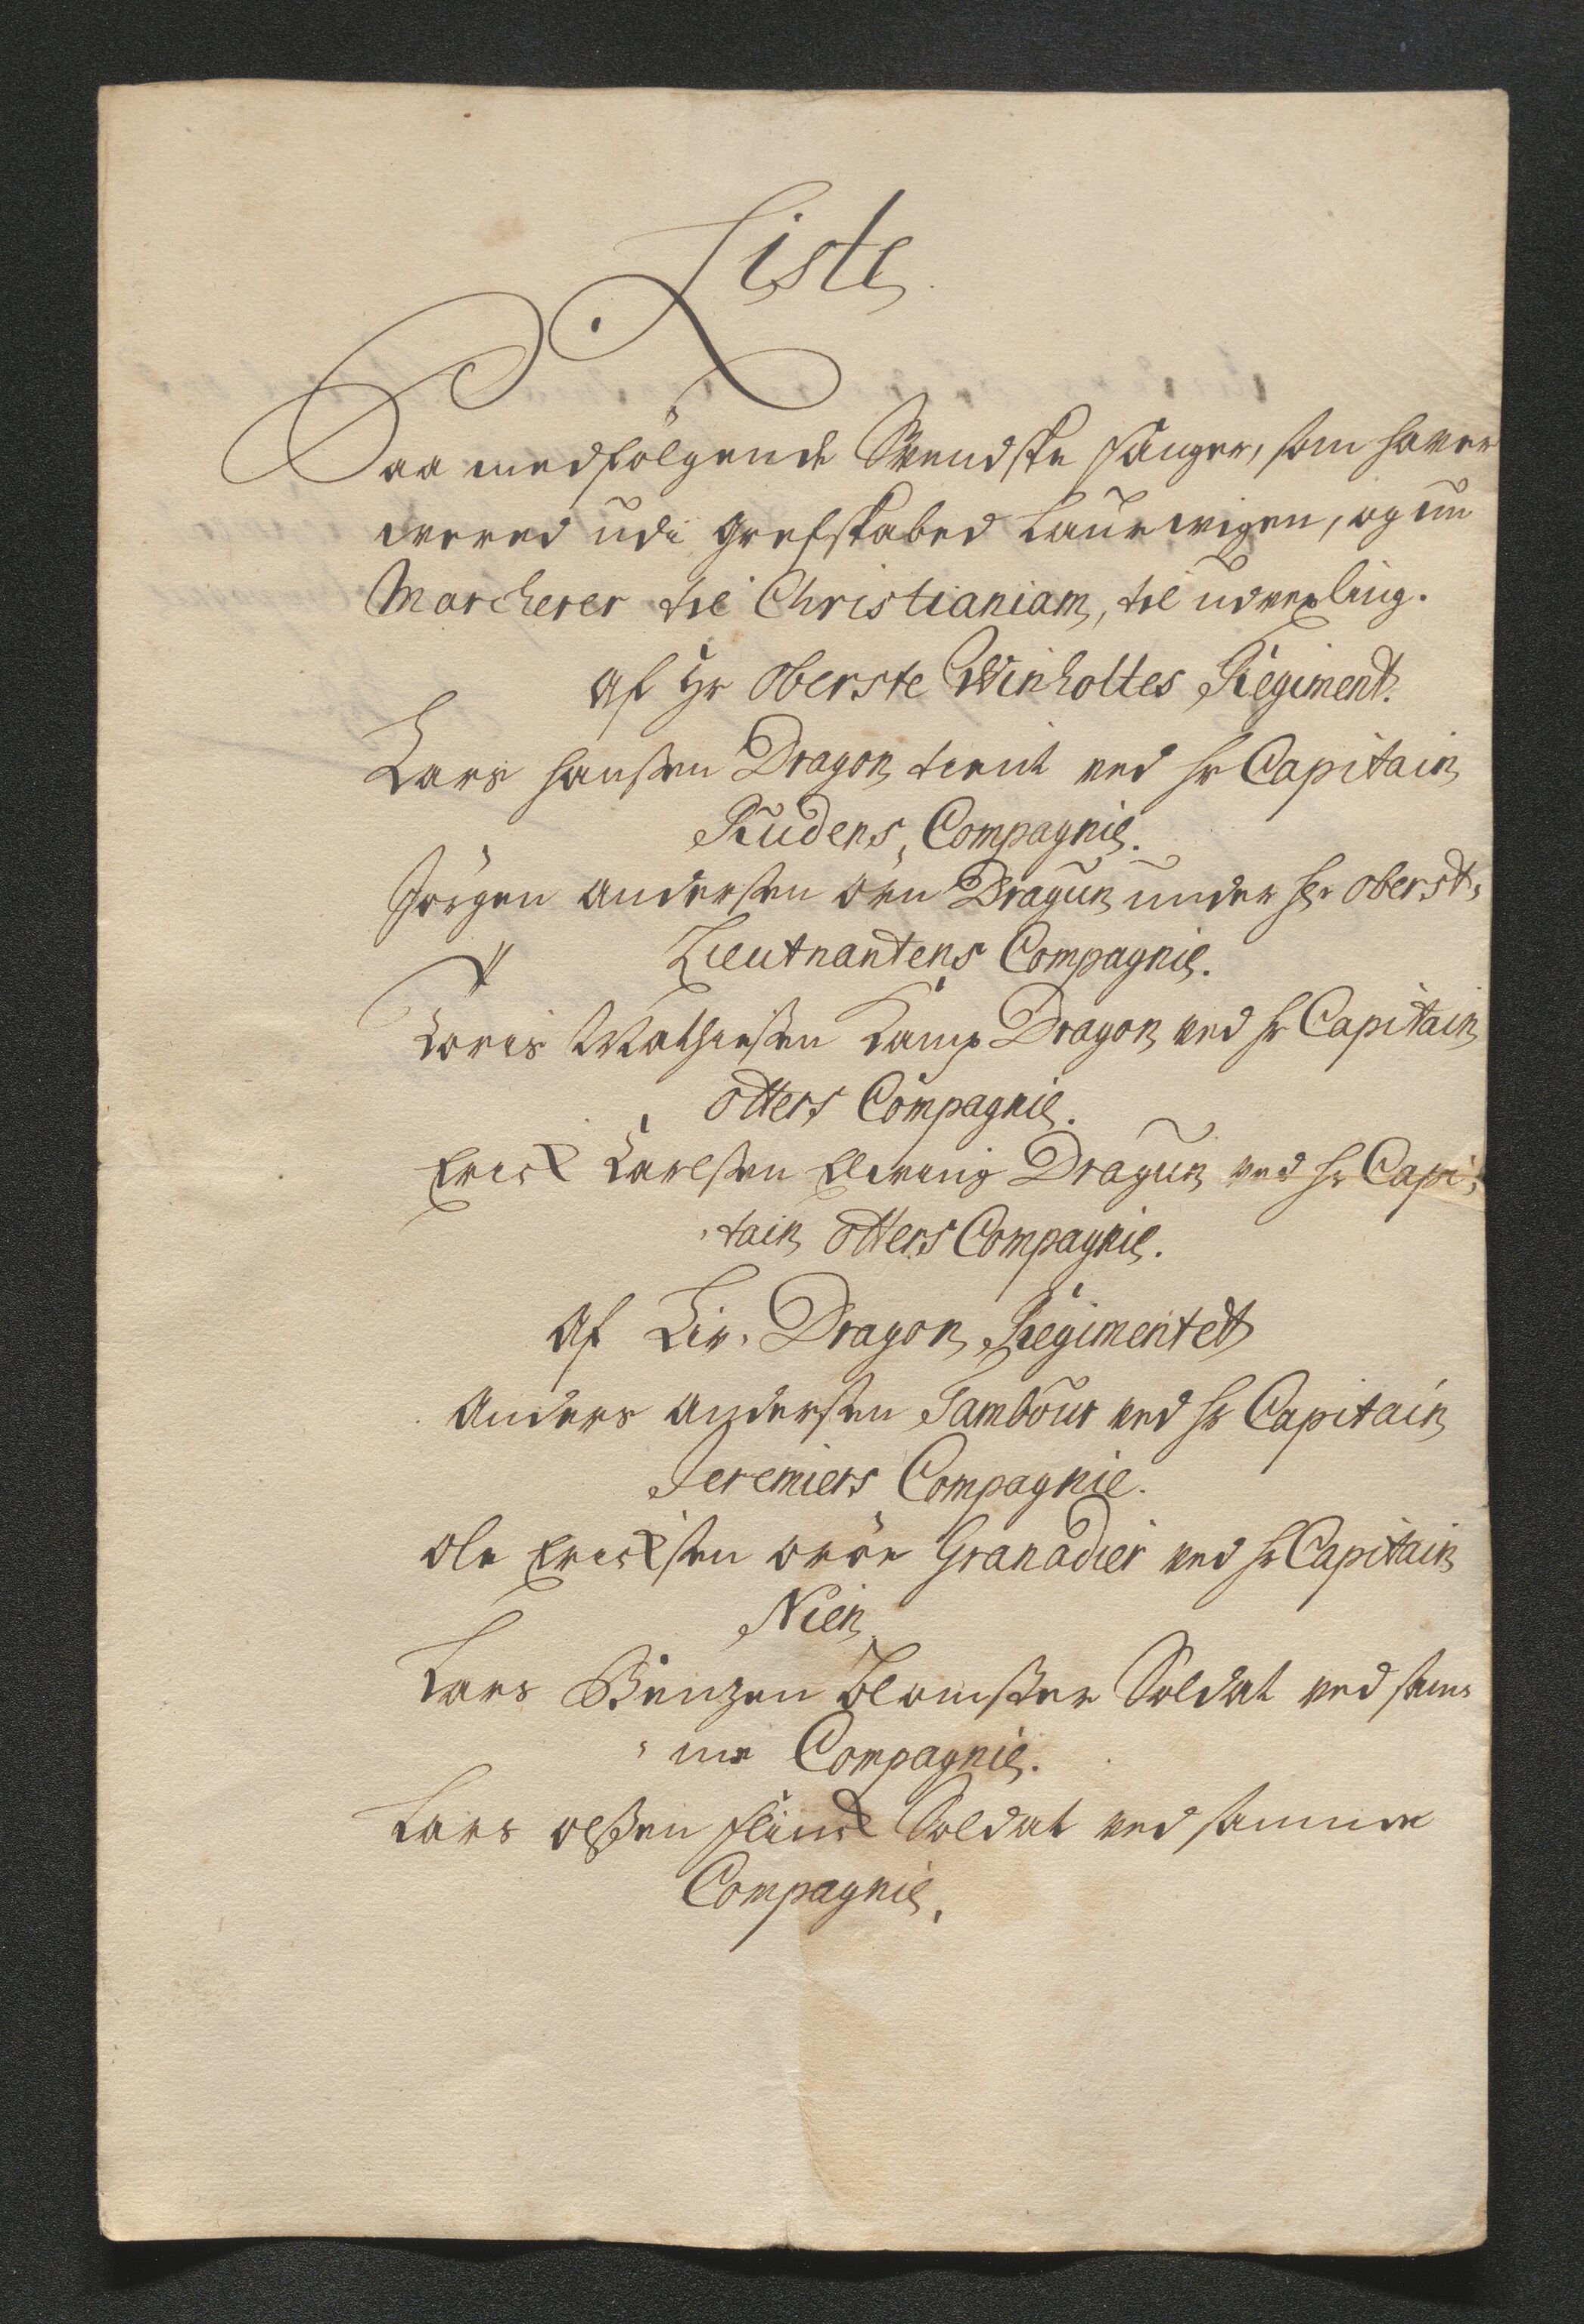 Liste
Paa medfölgende Svendske fanger, som haver
vered udi grefskabed Laurvigen, og nu
Marcherer til Christianiam, til udvexling.
Af Hr Oberste Winholtes Regiment.
Lars Hanßen Dragon, tient ved Hr Capitain
Rudens, Compagnie.
Jörgen Anderßen örn Dragun under Hr Oberst-
Lieutnantens Compagnie.
Loris Mathießen Kamp Dragon ved Hr Capitain
Otters Compagnie.
Erick Karlßen Dragun ved Hr Capi-
-tain Otters Compagnie.
Af Liv-Dragon Regimentet
Anders Anderßen Tambour ved Hr Capitain
Jeremiers Compagnie.
Ole Erickßen Granadier ved Hr Capitain
Nien
Lars Benzen Blomster Soldat ved sam-
-me Compagnie.
Lars Olßen flinck Soldat ved samme
Compagnie.